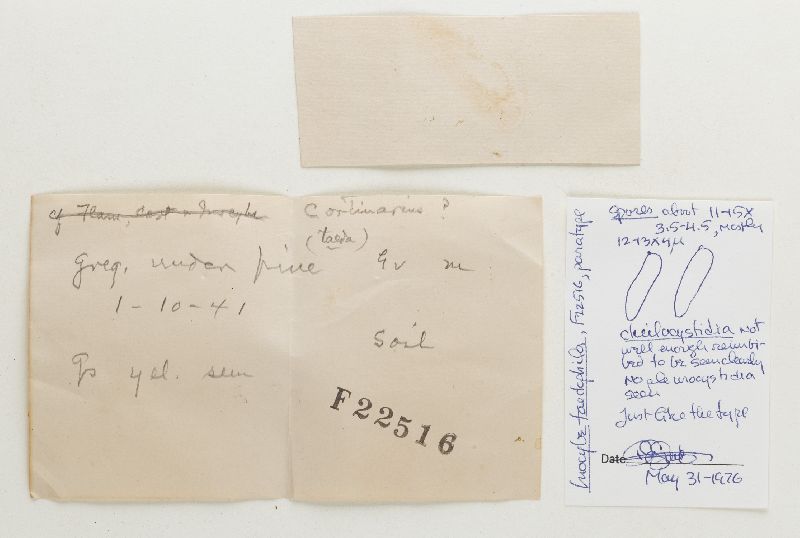 cf Flam, Cort or Inocybe Cortinarius ?
(taeda)
Greg. under pine Gv m
1-10-41
Soil
Gs yel.
F22516
Inocybe taedophila, F22516, paratype
spores about 11-15x
3.5-4.5, mostly
12-13x4µ
cheilocystidia not
well enough reimbi-
bed to be seen clearly
No pleurocystidia
seen
Just like the type
Date
May 31-1976